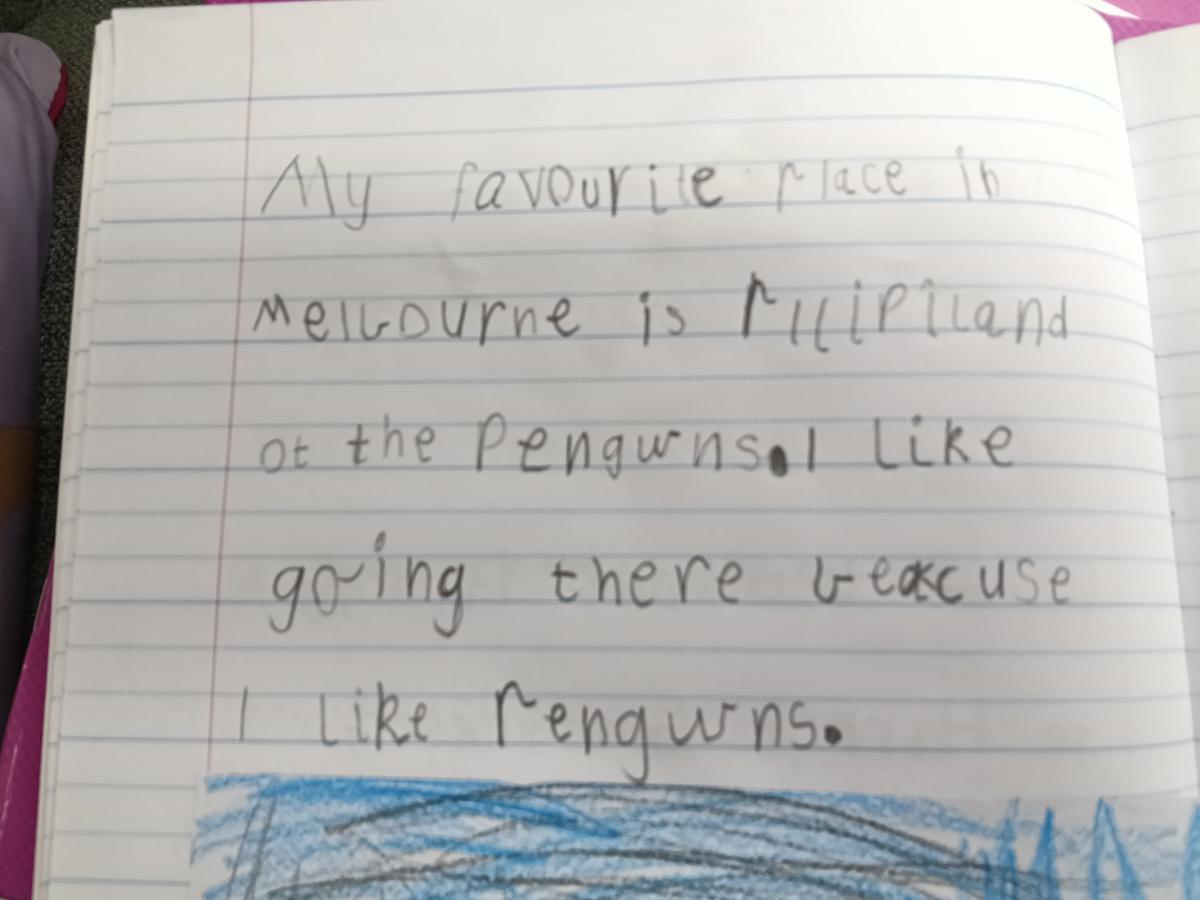 My favourite place in
Melbourne is Pillipiland
at the Pengwns. I like
going there beacuse
I like Pengwns.